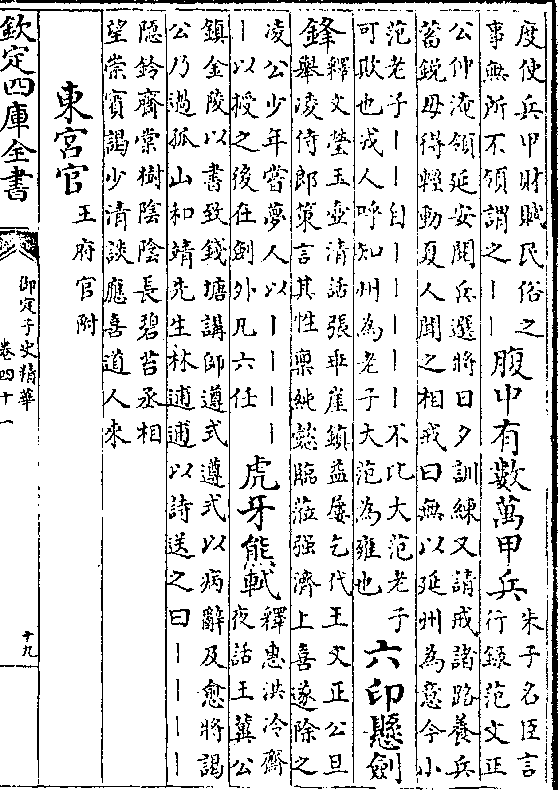 度使兵甲財賦民俗之
事無所不領謂之｜｜
腹中有數萬甲兵
朱子名臣言
行錄范文正
公仲淹領延安閱兵選將日夕訓練又請戒諸路養兵
蓄銳毋得輕動夏人聞之相戒曰無以延州為意今小
范老子｜｜自｜｜｜｜｜不比大范老子
可欺也戎人呼知州為老子大范為雍也
六印懸劍
鋒
釋文瑩玉壺清話張乖崖鎮益屢乞代王文正公旦
舉凌侍郎策言其性稟純懿臨蒞强濟上喜遂除之
凌公少年嘗夢人以｜｜｜｜
｜以授之後在劍外凡六任
虎牙熊軾
釋惠洪冷齋
夜話王冀公
鎮金陵以書致錢塘講師遵式遵式以病辭及愈將謁
公乃過孤山和靖先生林逋逋以詩送之曰｜｜｜｜
隱鈴齋棠樹陰陰長碧苔丞相
望崇賓謁少清談應喜道人來
東宮官
王府官附
欽定四庫全書
御定子史精華
卷四十一
十九